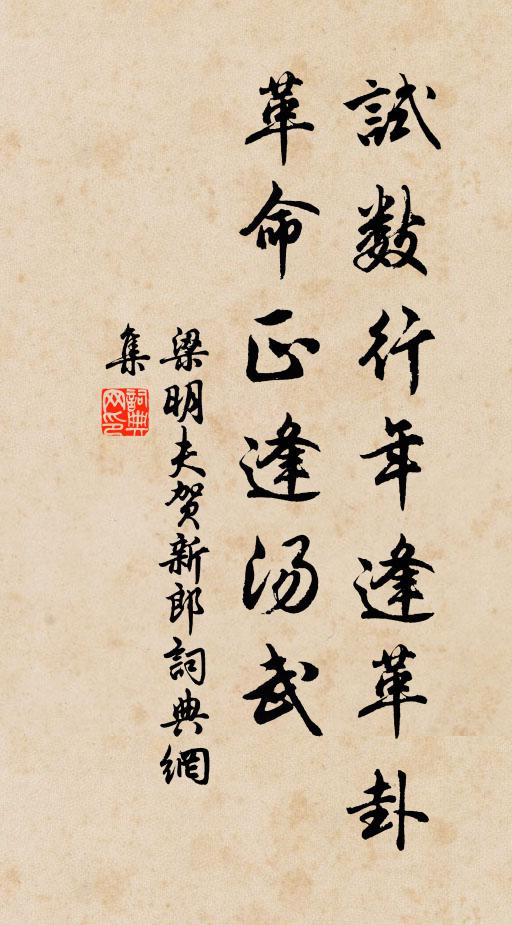 試數行年逢革卦
革命正逢湯武
梁明夫賀新郎詞典網
集
詞典
网印